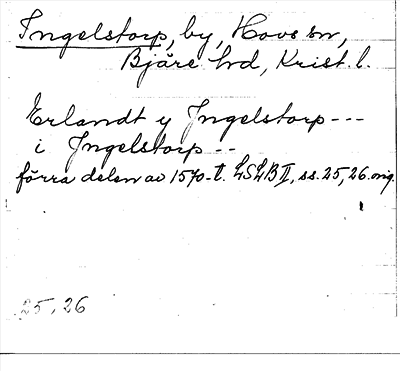 Ingelstorp, by, Hovs sn,
Bjäre hd, Krist. l.
Erlandt y Jngelstorp ---
i Jngelstorp --
förra delen av 1570-t. LSLB II, ss. 25, 26. orig.
25, 26